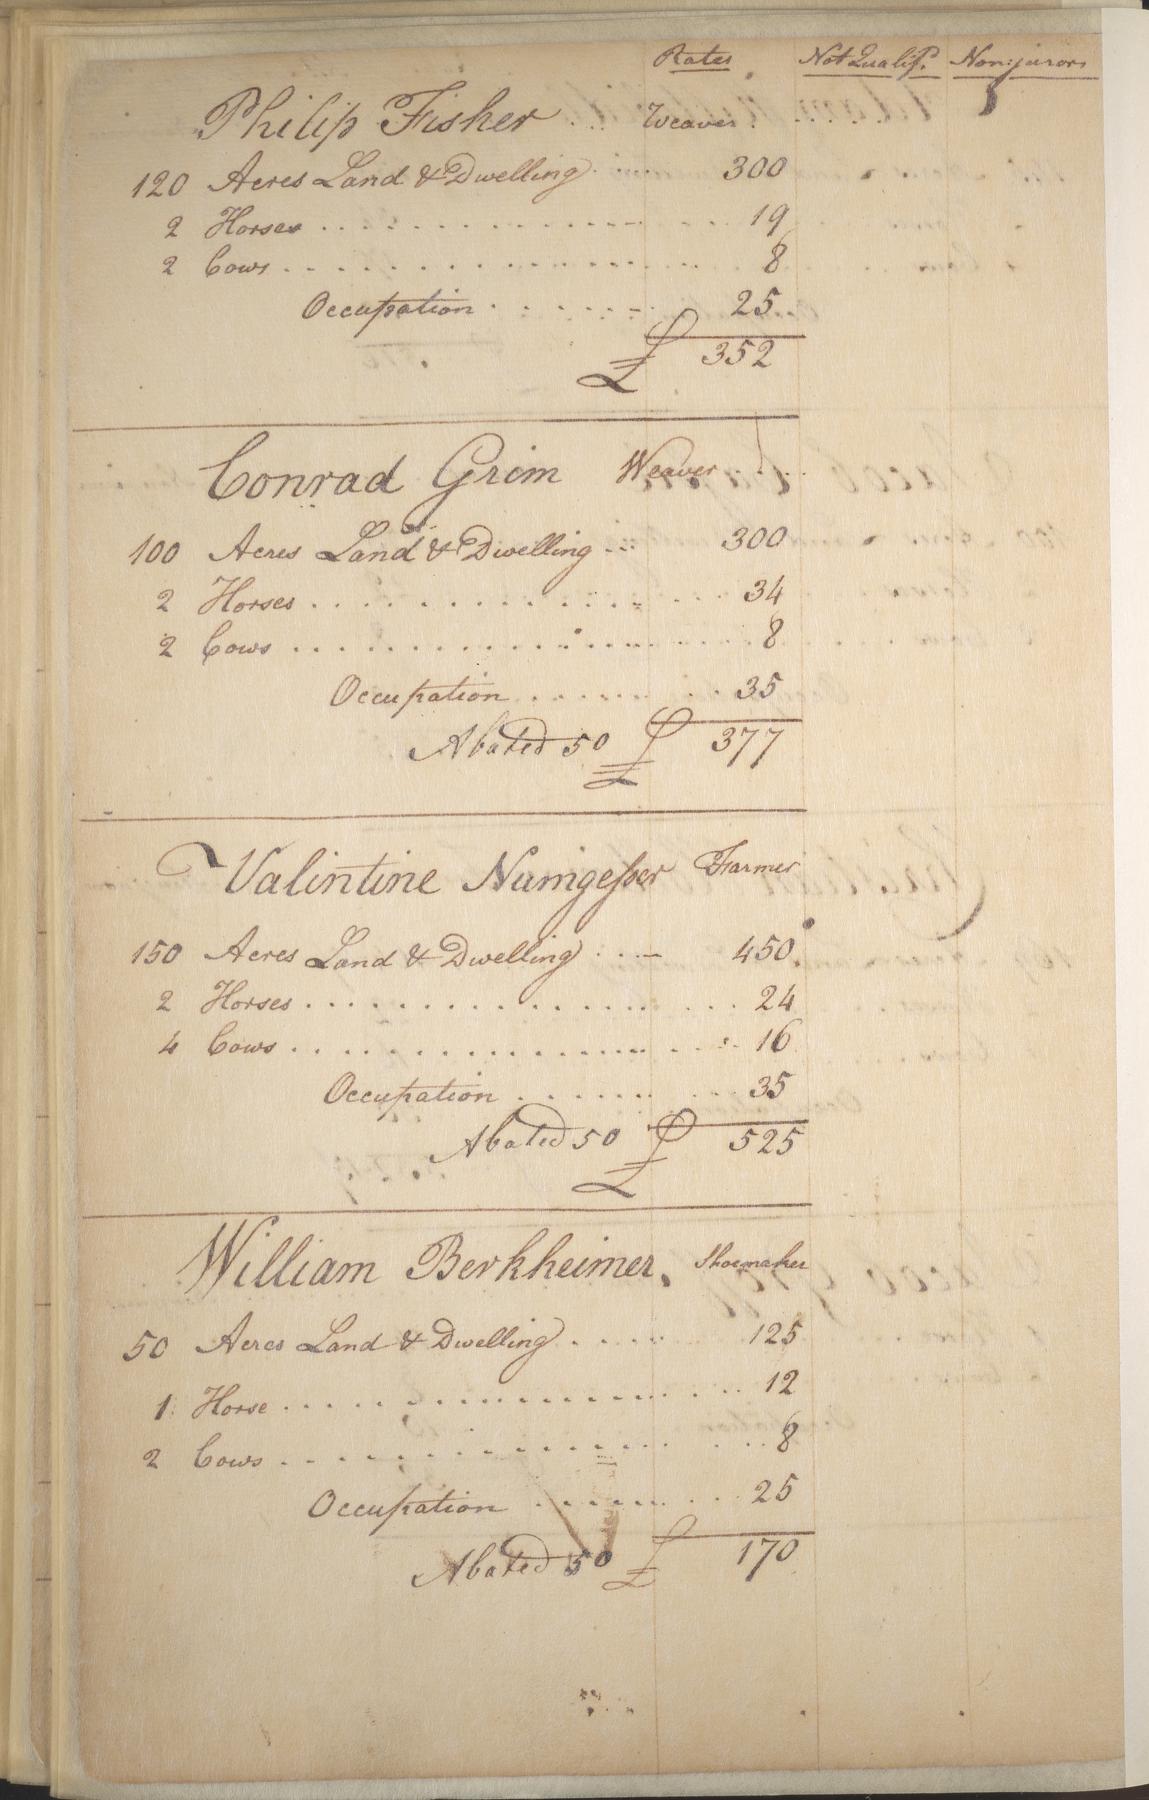 Rates Not Qualif.d Non:jurors
Philip Fisher ... Weaver.
120 Acres Land & Dwelling ..... 300
2 Horses .................... 19
2 Cows .................... 8
Occupation ......... 25
£ 352
Conrad Grim Weaver ...
100 Acres Land & Dwelling ... 300
2 Horses .................... 34
2 Cows .................... 8
Occupation ......... 35
Abated 50 £ 377
Valintine Numgeſser Farmer
150 Acres Land & Dwelling .... 450
2 Horses .................... 24
4 Cows .................... 16
Occupation ......... 35
Abated 50 £ 525
William Berkheimer. Shoemaker
50 Acres Land & Dwelling ..... 125
1 Horse .................... 12
2 Cows .................... 8
Occupation ......... 25
Abated 50 £ 170